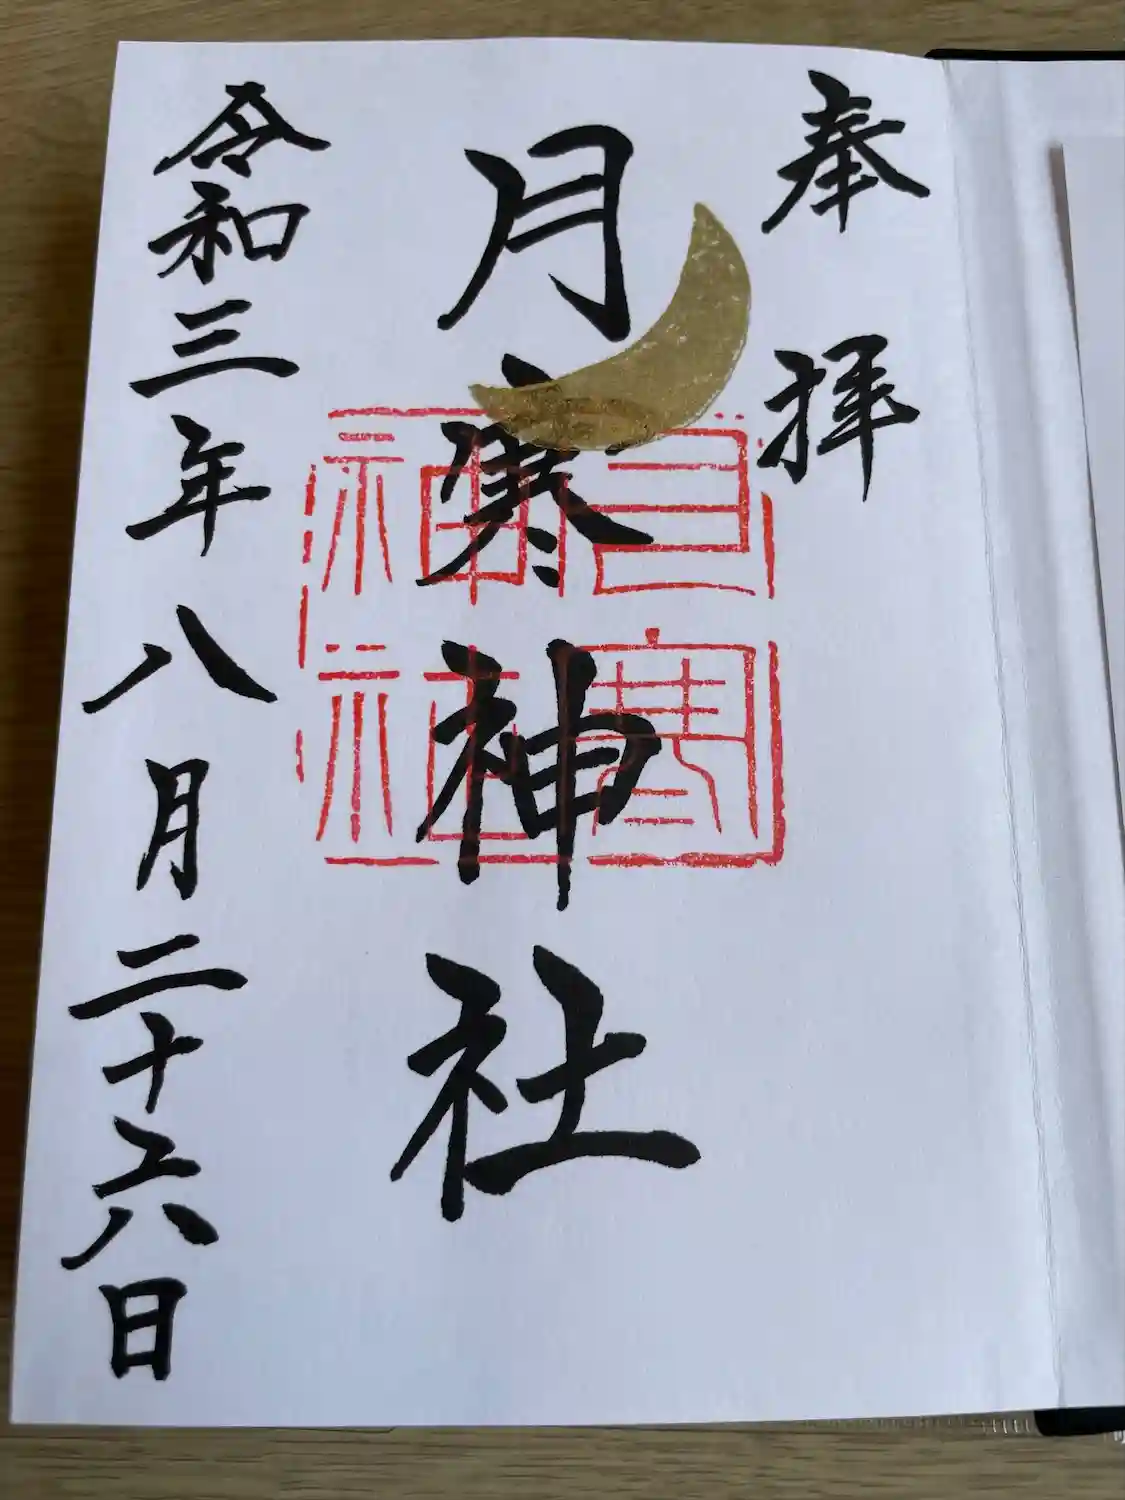 奉拝
月寒神社
月寒神社
令和三年八月二十六日